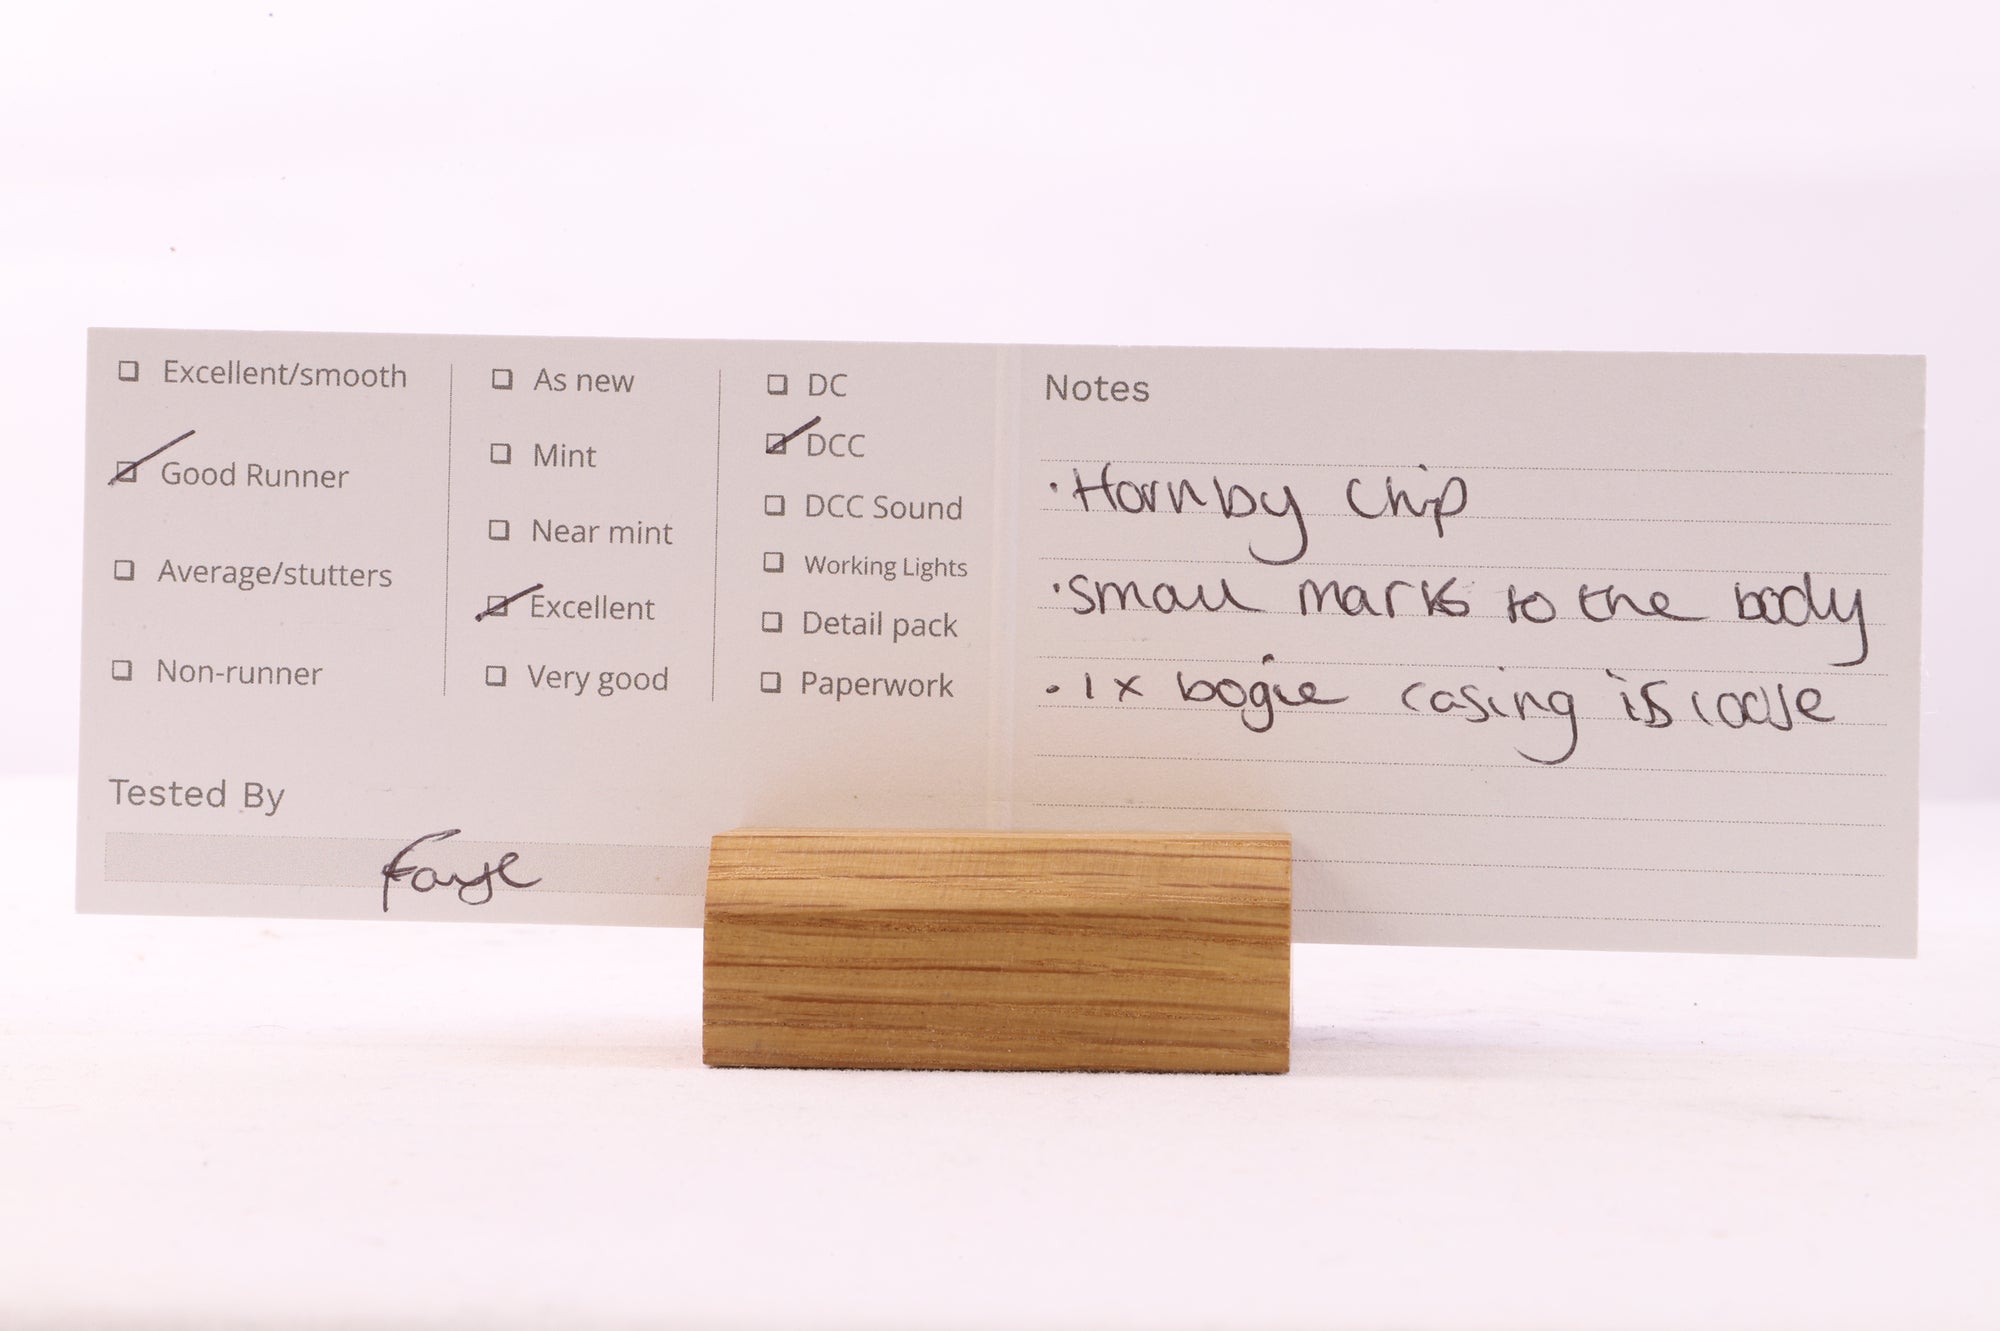 Excellent/smooth
Good Runner
Average/stutters
Non-runner
As new
Mint
Near mint
Excellent
Very good
DC
DCC
DCC Sound
Working Lights
Detail pack
Paperwork
Tested By
Faye
Notes
· Hornby Chip
· small marks to the body
· 1x bogie casing is loose